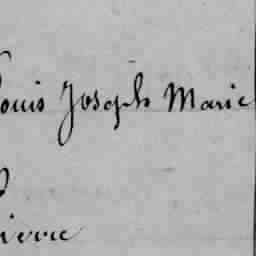 Louis Joseph Marie
Pierre